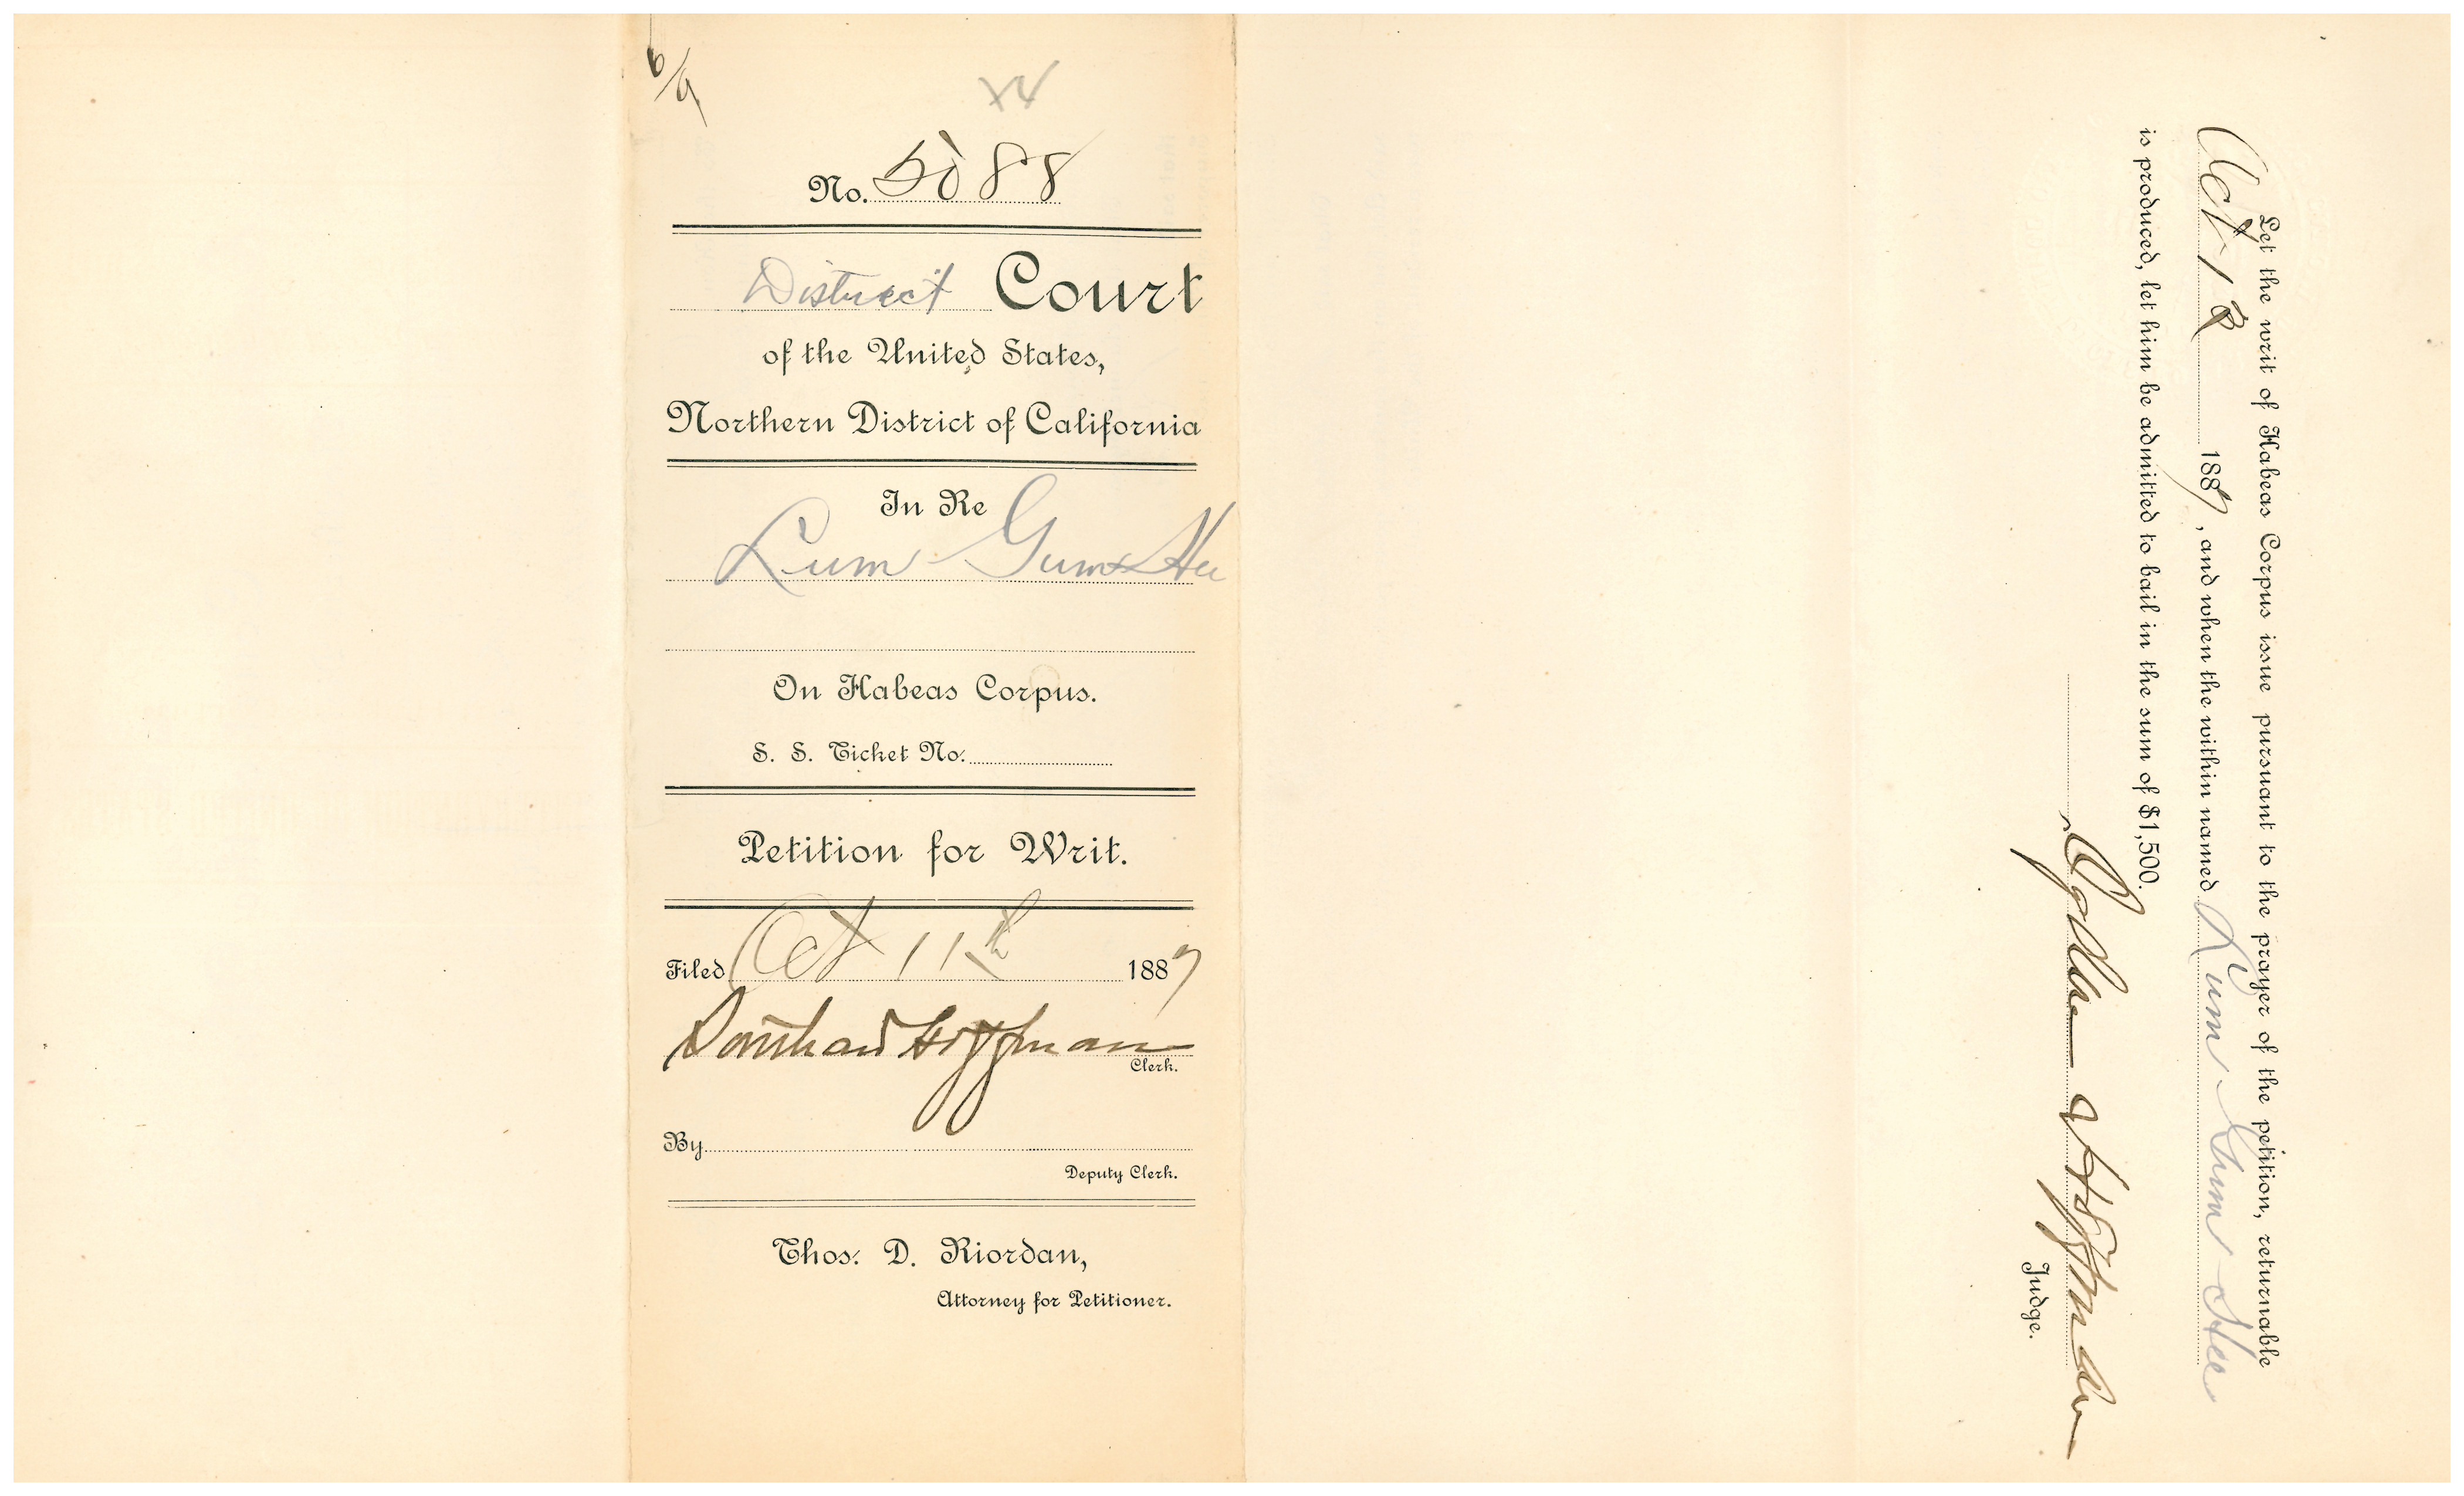 6/9
No. 5088
District Court
of the United States,
Northern District of California
In Re
Lum Gum Hee
On Habeas Corpus.
S. S. Ticket No.
Petition for Writ.
Filed Oct 11th 1887
Southard Hoffman
Clerk.
By
Deputy Clerk.
Thos. D. Riordan,
Attorney for Petitioner.
Let the writ of Habeas Corpus issue pursuant to the prayer of the petition, returnable
Oct 12 1887, and when the within named Lum Gum Hee
is produced, let him be admitted to bail in the sum of $1,500.
Ogden Hoffman
Judge.